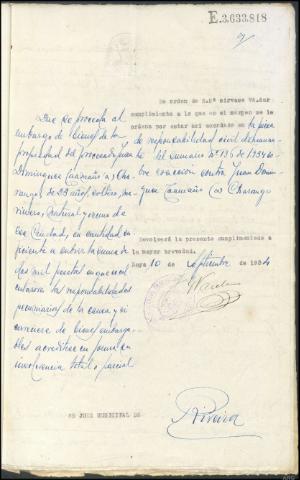 E.3.633.818
Que se proceda al
embargo de bienes de la
propiedad del procesado Juan
Dominguez Caamaño a) Cha-
rango, de 23 años, soltero, ma-
rinero, natural y vecino de
esa Ciudad, en cantidad su-
ficiente a cubrir la suma de
dos mil pesetas en que
las responsabilidades
pecuniarias de la causa y si
careciere de bienes embarga-
bles acreditese en forma su
insolvencia total o parcial
De orden de S.Sª sirvase Vd. dar
cumplimiento a lo que en el margen se le
ordena por estar asi acordado en la pieza
de responsabilidad civil
del sumario Nº 136 de 1934 so-
bre contra Juan Domin-
guez Caamaño (a) Charango
Devolverá la presente cumplimentada a
la mayor brevedad.
Noya 10 de Septiembre de 1934
SR JUEZ MUNICIPAL DE
Riveira